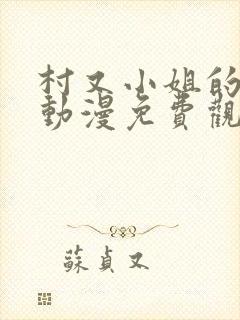 村又小姐的
動漫免費觀
蘇貞又